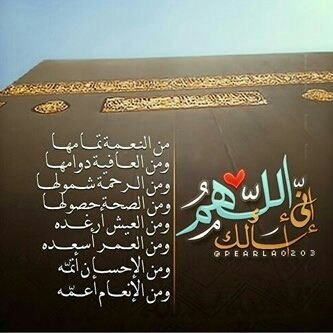 اللهم إني أسألك
@PEARLA0203
من النعمة تمامها
ومن العافية دوامها
ومن الرحمة شمولها
ومن الصحة حصولها
ومن العيش أرغده
ومن العمر أسعده
ومن الإحسان أتمّه
ومن الإنعام أعمّه